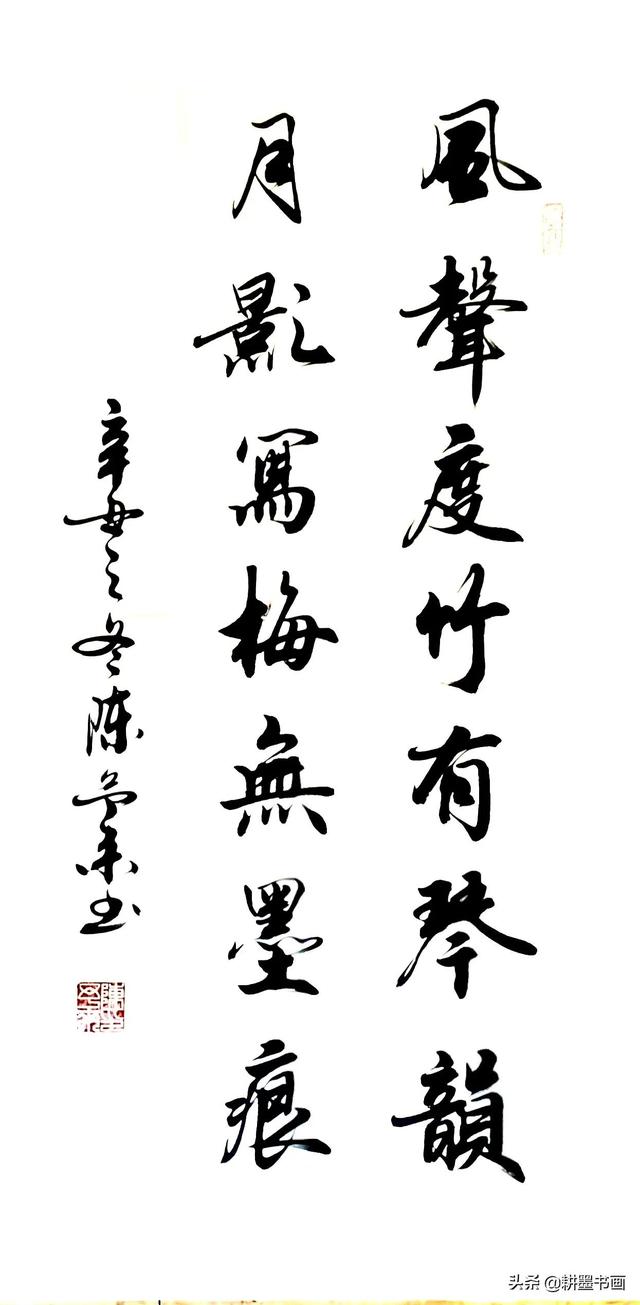 風聲度竹有琴韻
月影寫梅無墨痕
辛丑之冬陈
书
头条 @耕墨书画